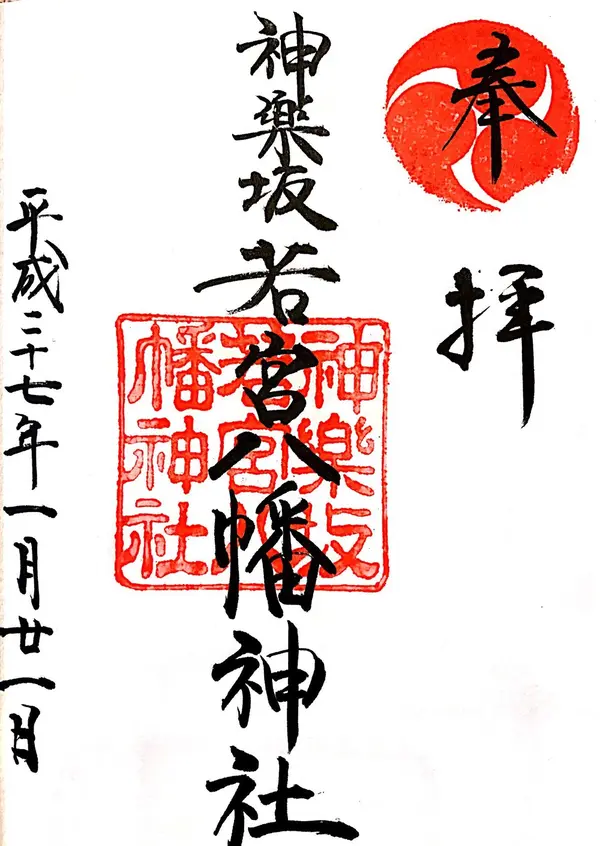 奉拝
神楽坂若宮八幡神社
神樂坂
若宮八
幡神社
平成二十七年一月廿一日